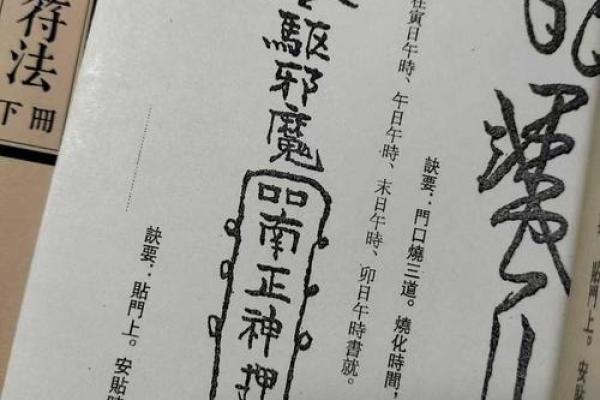 貼門上。安
訣要：門口燒三道。燒化時間，
寅日午時、午日午時、末日午時、卯日午時書就。
駆邪魔
口口南正神押
訣要：貼門上。安貼時
符法
下冊